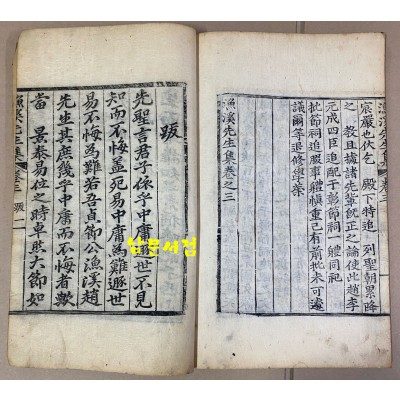 漁溪先生集 卷三
宸嚴也伏乞 殿下特追 列聖朝累降
之 敎且據諸先輩旣正之論使此趙李
元成四臣追配于彰節祠一體同祀
批節祠追腏事體愼重已有前批未可遽
議爾等退修學業
漁溪先生集卷之三
跋
先聖言君子依乎中庸遯世不見
知而不悔盖死易中庸爲難遯世
易不悔爲難若吾貞節公漁溪趙
先生其庶幾乎中庸而不悔者歟
當 景泰易位之時卓然大節如
漁溪先生集 卷三 跋 一
남문서점